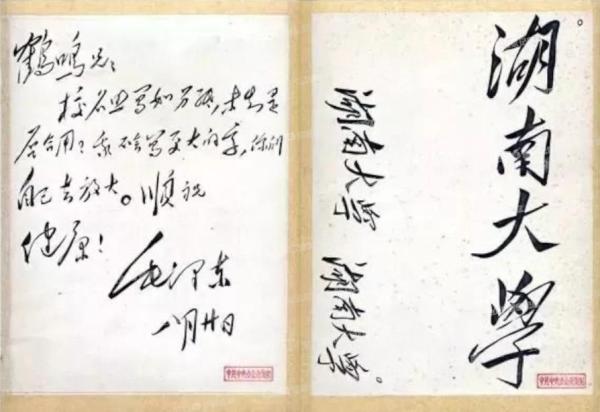 鶴鳴兄：
校名照写如另纸，未知是
否合用？我不会写更大的字，你们
自己去放大。顺祝
健康！
毛泽东
八月廿日
湖南大學
湖南大学
湖南大学。